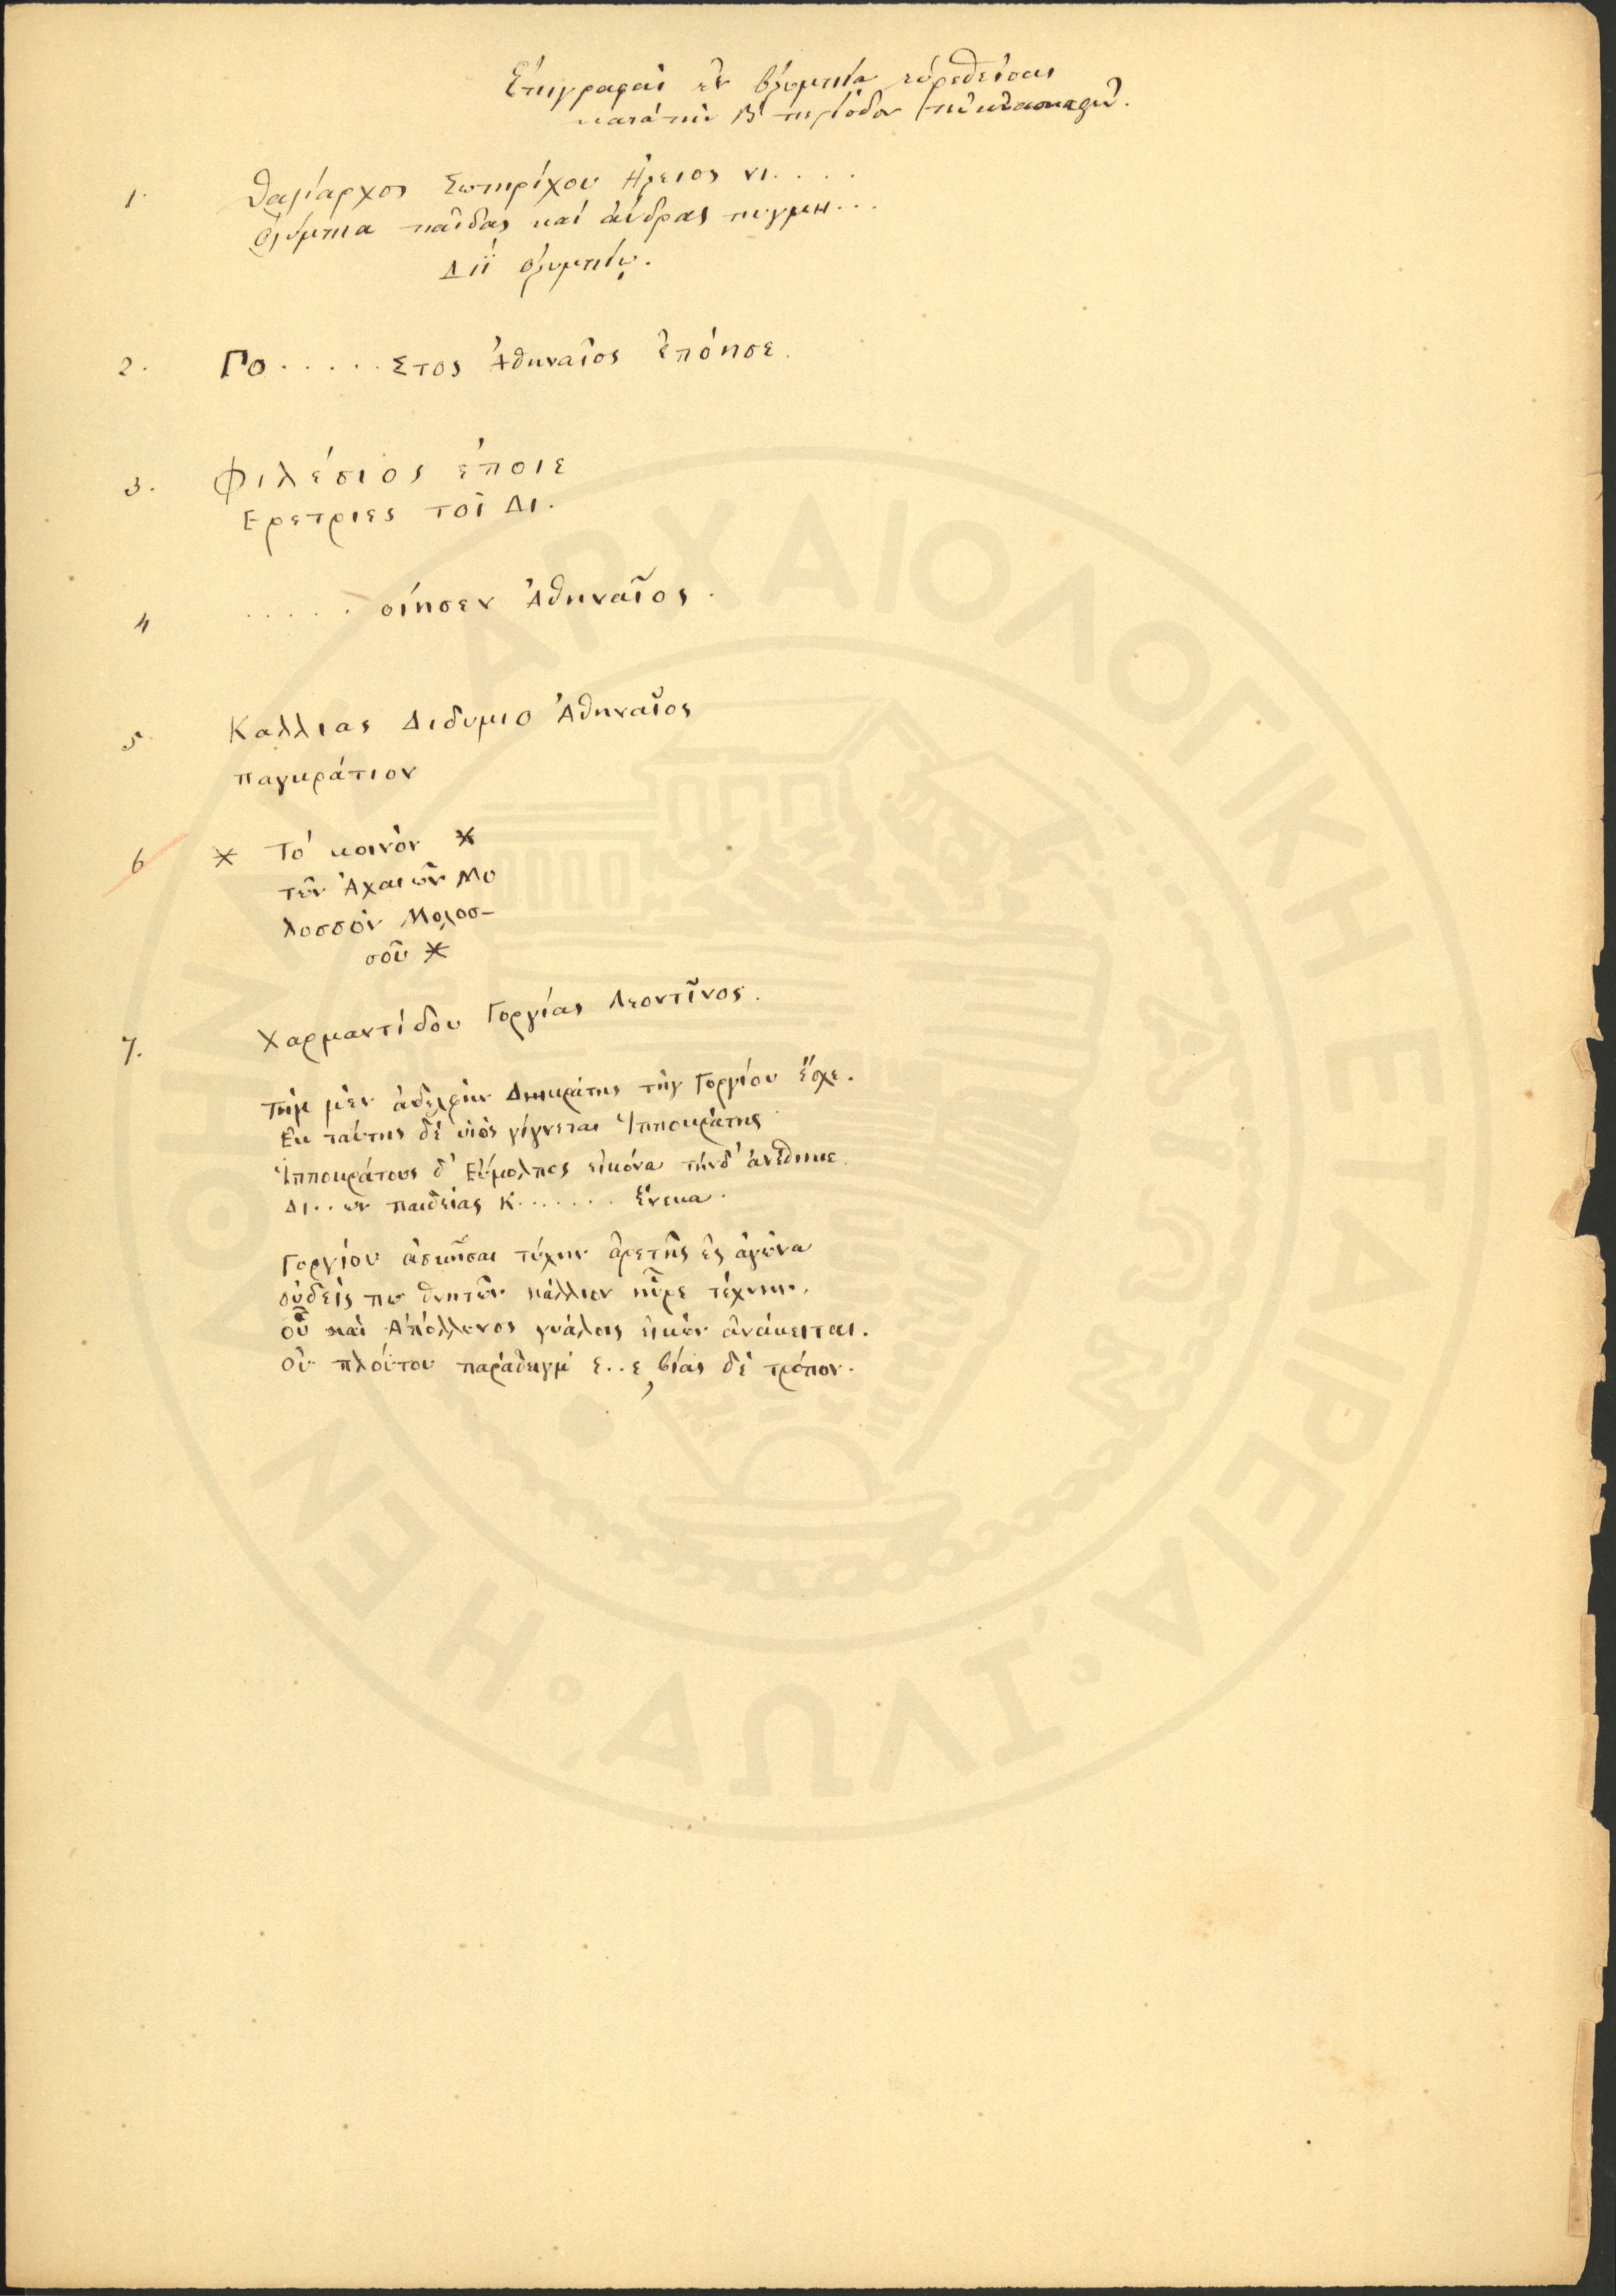 Ἐπιγραφαὶ ἐν Ὀλυμπίᾳ εὑρεθεῖσαι
κατὰ τὴν Β περίοδον τῶν ἀνασκαφῶν.
1. Θαλίαρχος Σωτηρίχου Ηλειος νι....
Ολύμπια παῖδας καί ἄνδρας πυγμη...
Διΐ Ολυμπίῳ.
2. Γο.....στος Ἀθηναῖος ἐπόησε.
3. Φιλέσιος ἐποιε
Ερετριες τοῖ Δι.
4 ..... οίησεν Ἀθηναῖος.
5. Καλλιας Διδυμιο Ἀθηναῖος
παγκράτιον
6 * Τὸ κοινὸν *
τῶν Ἀχαιῶν Μο
λοσσὸν Μολοσ-
σοῦ *
7. Χαρμαντίδου Γοργίας Λεοντῖνος.
Τὴμ μὲν ἀδελφὴν Δηικράτης τὴγ Γοργίου ἔσχε.
Εκ ταύτης δὲ υἱὸς γίγνεται Ἱπποκράτης
Ἱπποκράτους δ' Εὔμολπος εἰκόνα τήνδ' ἀνέθηκε.
Δι..ων παιδείας κ....... ἕνεκα.
Γοργίου ἀσκῆσαι τύχην ἀρετῆς ἐς ἀγῶνα
οὐδείς πω θνητῶν κάλλιον ηὗρε τέχνην.
οὗ καὶ Ἀπόλλωνος γυάλοις εἰκὼν ἀνάκειται.
Οὐ πλούτου παράδειγμ' ε..ε, βίας δὲ τρόπον.
ἩΕΝ ΑΘΗΝΑΙΣ ΑΡΧΑΙΟΛΟΓΙΚΗ ΕΤΑΙΡΕΙΑ
ΑΩΛΖ